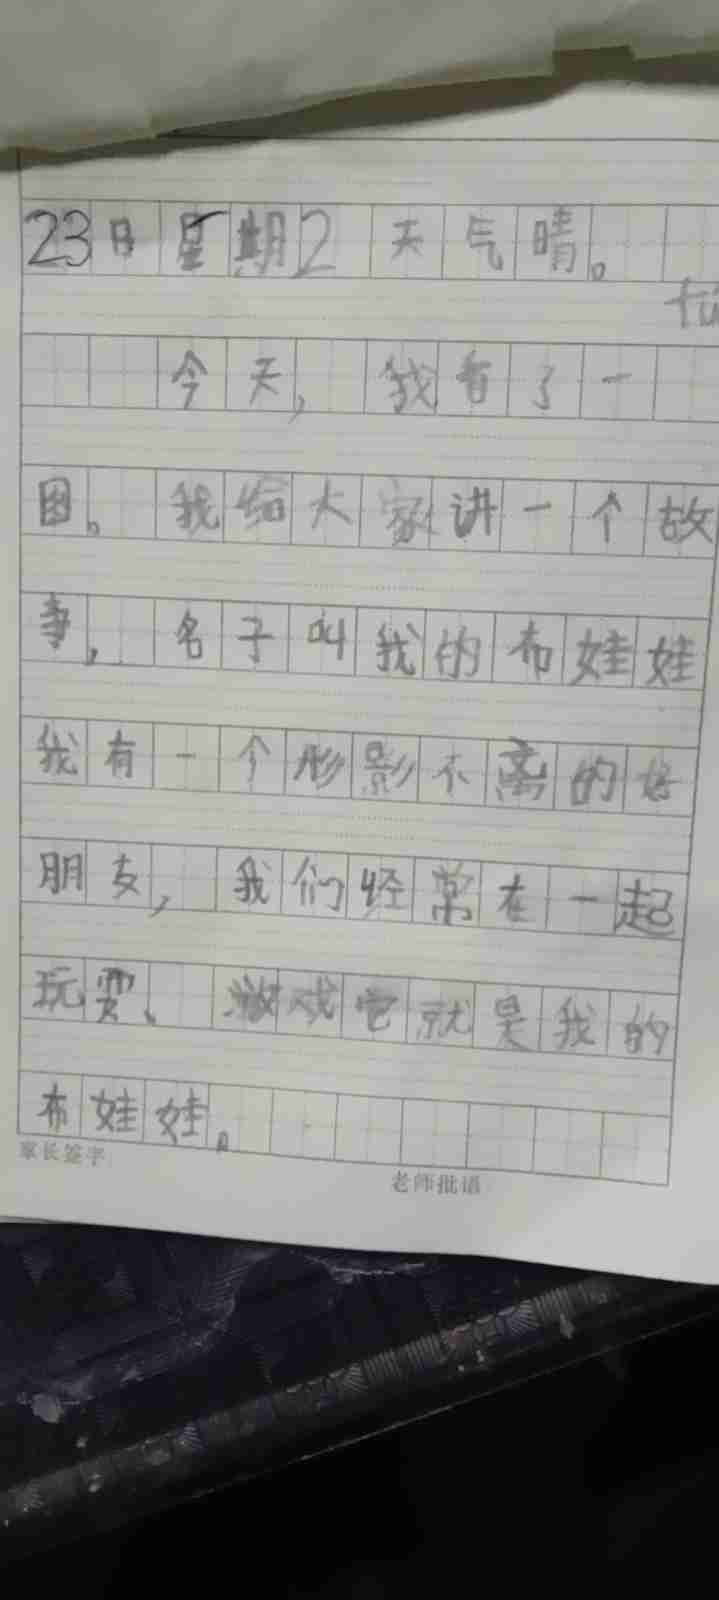 23日星期2 天气晴。
fú
今天，我看了一
图。我给大家讲一个故
事，名子叫我的布娃娃
我有一个形影不离的好
朋友，我们经常在一起
玩耍、游戏它就是我的
布娃娃。
家长签字
老师批语